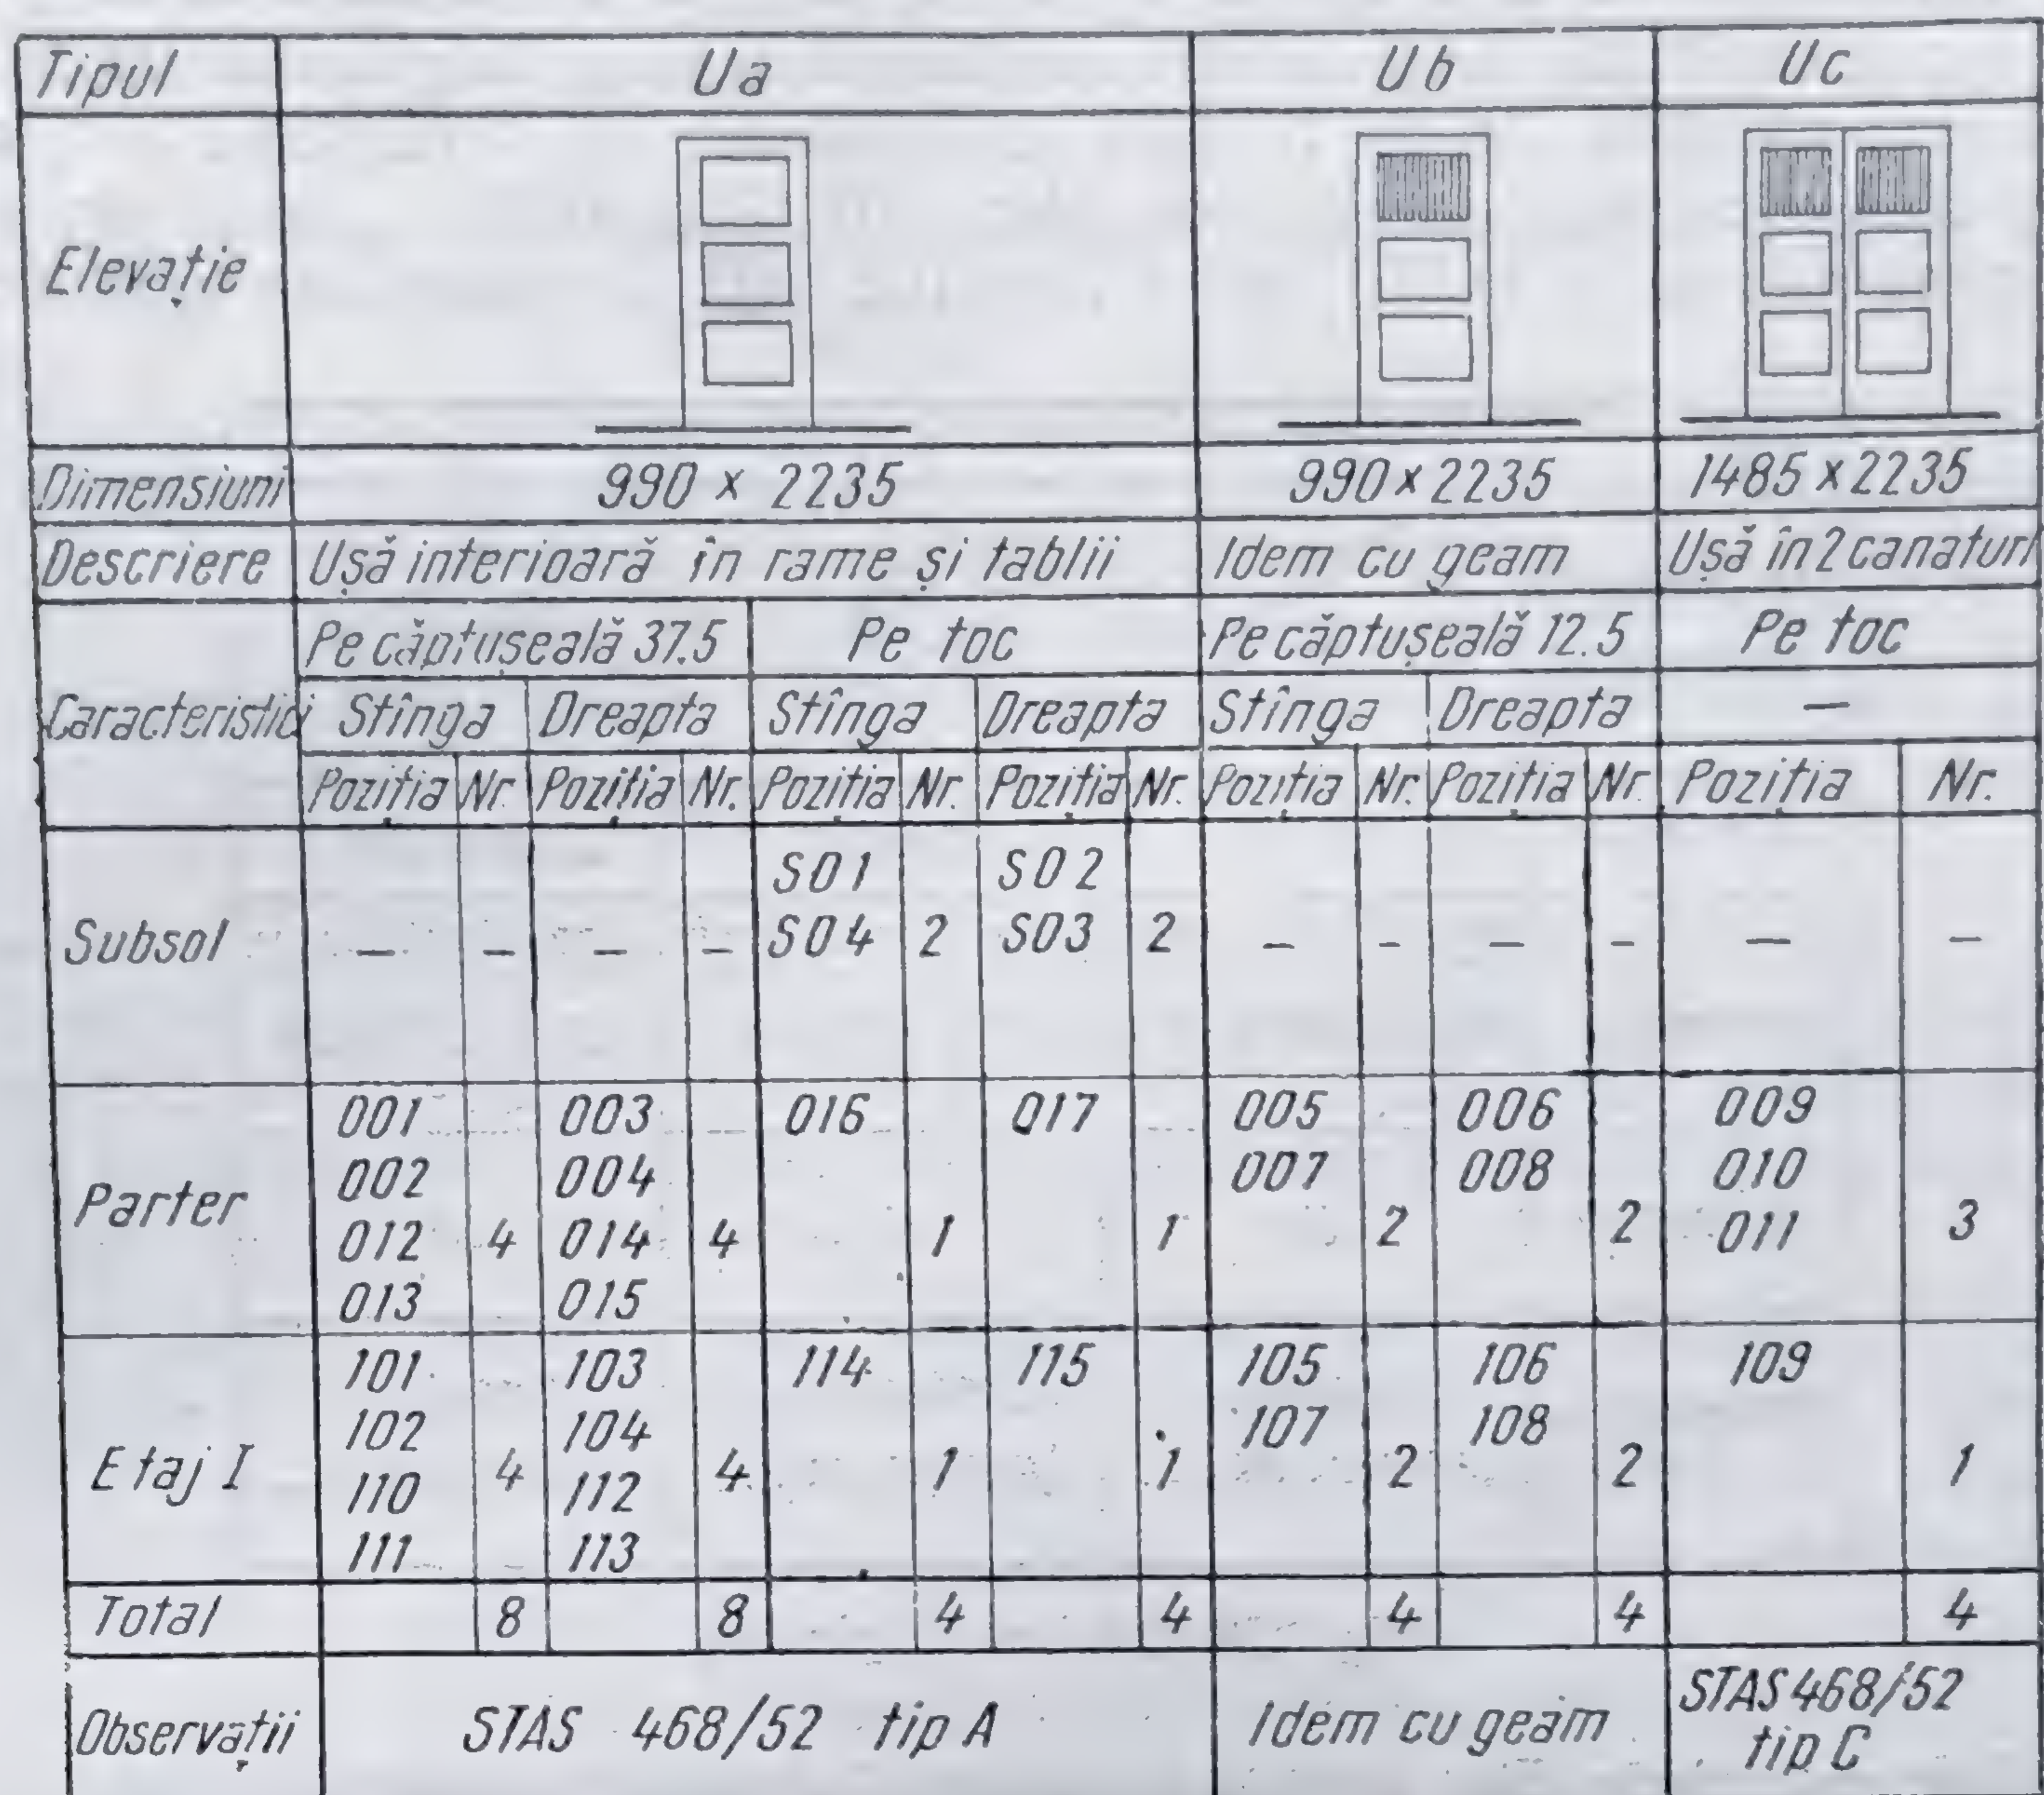 Tipul Ua Ub Uc
Elevație
Dimensiuni 990 x 2235 990 x 2235 1485 x 2235
Descriere Ușă interioară în rame și tablii Idem cu geam Ușă în 2 canaturi
Caracteristici
Pe căptușeală 37.5 Pe toc Pe căptușeală 12.5 Pe toc
Stînga Dreapta Stînga Dreapta Stînga Dreapta —
Poziția Nr. Poziția Nr. Poziția Nr. Poziția Nr. Poziția Nr. Poziția Nr. Poziția Nr.
Subsol
S01 S02
— — — — S04 2 S03 2 — — — — — —
Parter
001 003 016 017 005 006 009
002 004 007 008 010
012 4 014 4 1 1 2 2 011 3
013 015
Etaj I
101 103 114 115 105 106 109
102 104 107 108
110 4 112 4 1 1 2 2 1
111 113
Total 8 8 4 4 4 4 4
Observații STAS 468/52 tip A Idem cu geam STAS 468/52
tip C